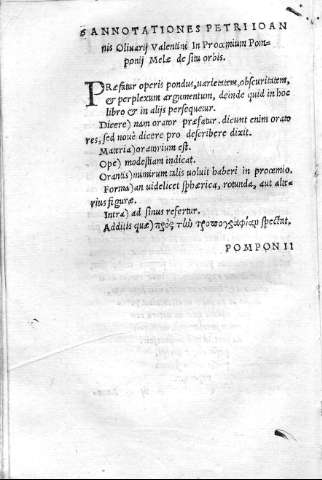 6 ANNOTATIONES PETRI IOAN
nis Oliuarij Valentini In Proœmium Pom-
ponij Melæ de situ orbis.
PRæfatur operis pondus, varietatem, obscuritatem,
& perplexum argumentum, deinde quid in hoc
libro & in alijs persequetur.
Dicere) nam orator præfatur. dicunt enim orato
res, sed nouè dicere pro describere dixit.
Materia) oratorium est.
Ope) modestiam indicat.
Orantis) nimirum talis voluit haberi in proœmio.
Forma) an uidelicet sphærica, rotunda, aut alte
rius figuræ.
Intra) ad sinus refertur.
Additis quæ) πρὸς τὼν τροπογραφίαν spectant.
POMPONII